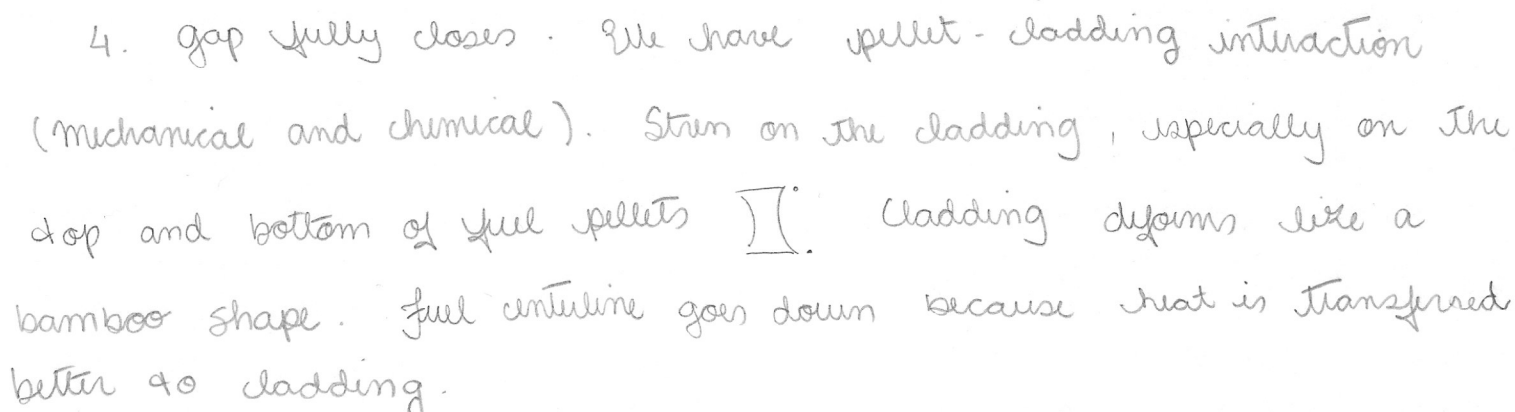 4. gap fully closes. We have pellet-cladding interaction
(mechanical and chemical). Stress on the cladding, especially on the
top and bottom of fuel pellets Cladding deforms like a
bamboo shape. fuel centerline goes down because heat is transferred
better to cladding.